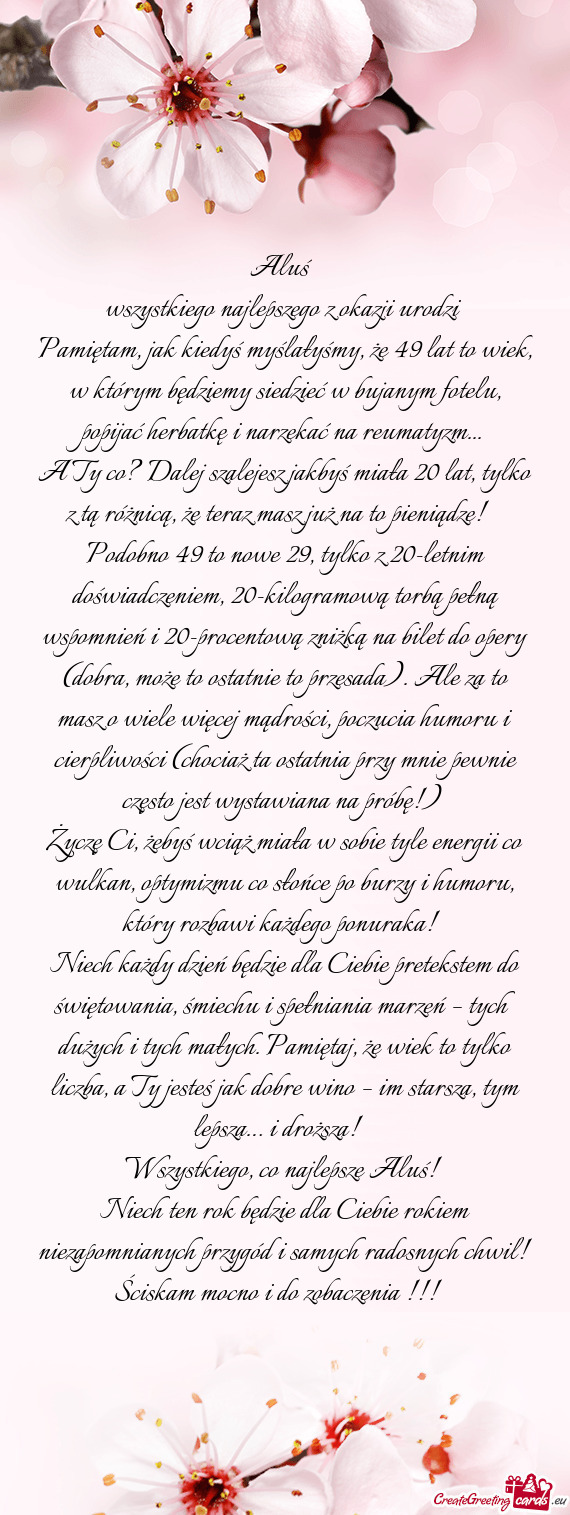 Aluś
wszystkiego najlepszego z okazji urodzi
Pamiętam, jak kiedyś myślałyśmy, że 49 lat to wiek,
w którym będziemy siedzieć w bujanym fotelu,
popijać herbatkę i narzekać na reumatyzm...
A Ty co? Dalej szalejesz jakbyś miała 20 lat, tylko
z tą różnicą, że teraz masz już na to pieniądze!
Podobno 49 to nowe 29, tylko z 20-letnim
doświadczeniem, 20-kilogramową torbą pełną
wspomnień i 20-procentową zniżką na bilet do opery
(dobra, może to ostatnie to przesada). Ale za to
masz o wiele więcej mądrości, poczucia humoru i
cierpliwości (chociaż ta ostatnia przy mnie pewnie
często jest wystawiana na próbę!)
Życzę Ci, żebyś wciąż miała w sobie tyle energii co
wulkan, optymizmu co słońce po burzy i humoru,
który rozbawi każdego ponuraka!
Niech każdy dzień będzie dla Ciebie pretekstem do
świętowania, śmiechu i spełniania marzeń – tych
dużych i tych małych. Pamiętaj, że wiek to tylko
liczba, a Ty jesteś jak dobre wino – im starsza, tym
lepsza... i droższa!
Wszystkiego, co najlepsze Aluś!
Niech ten rok będzie dla Ciebie rokiem
niezapomnianych przygód i samych radosnych chwil!
Ściskam mocno i do zobaczenia !!!
CreateGreeting cards .eu